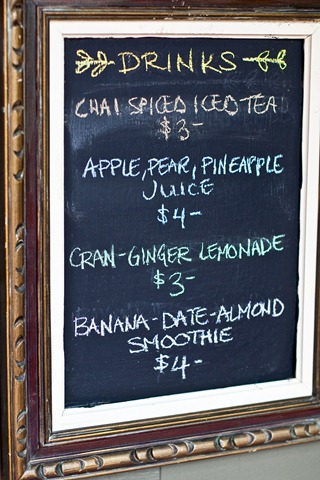 DRINKS
CHAI SPICED ICED TEA
$3-
APPLE, PEAR, PINEAPPLE
JUICE
$4-
CRAN-GINGER LEMONADE
$3-
BANANA-DATE-ALMOND
SMOOTHIE
$4-